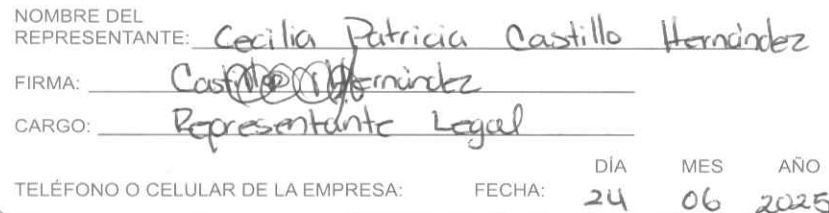 NOMBRE DEL
REPRESENTANTE: Cecilia Patricia Castillo Hernández
FIRMA: Castillo Hernández
CARGO: Representante Legal
DÍA MES AÑO
TELÉFONO O CELULAR DE LA EMPRESA: FECHA: 24 06 2025